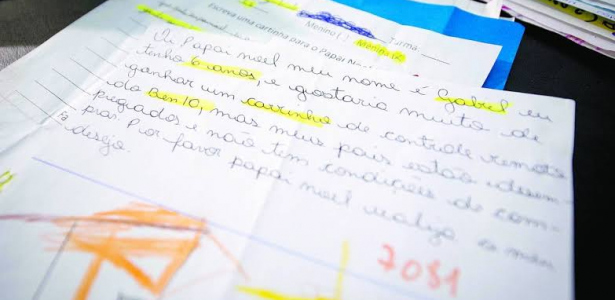 Menino ( ) Menina ( Turma:
Escreva uma cartinha para o Papai No
Oi Papai noel meu nome é Gabriel eu
tenho 6 anos, e gostaria muito de
ganhar um carrinho de controle remoto
do Ben 10, mas meus pais estão desem-
pregados e não tem condições de com-
prar. Por favor papai noel realize o meu
desejo.
7081